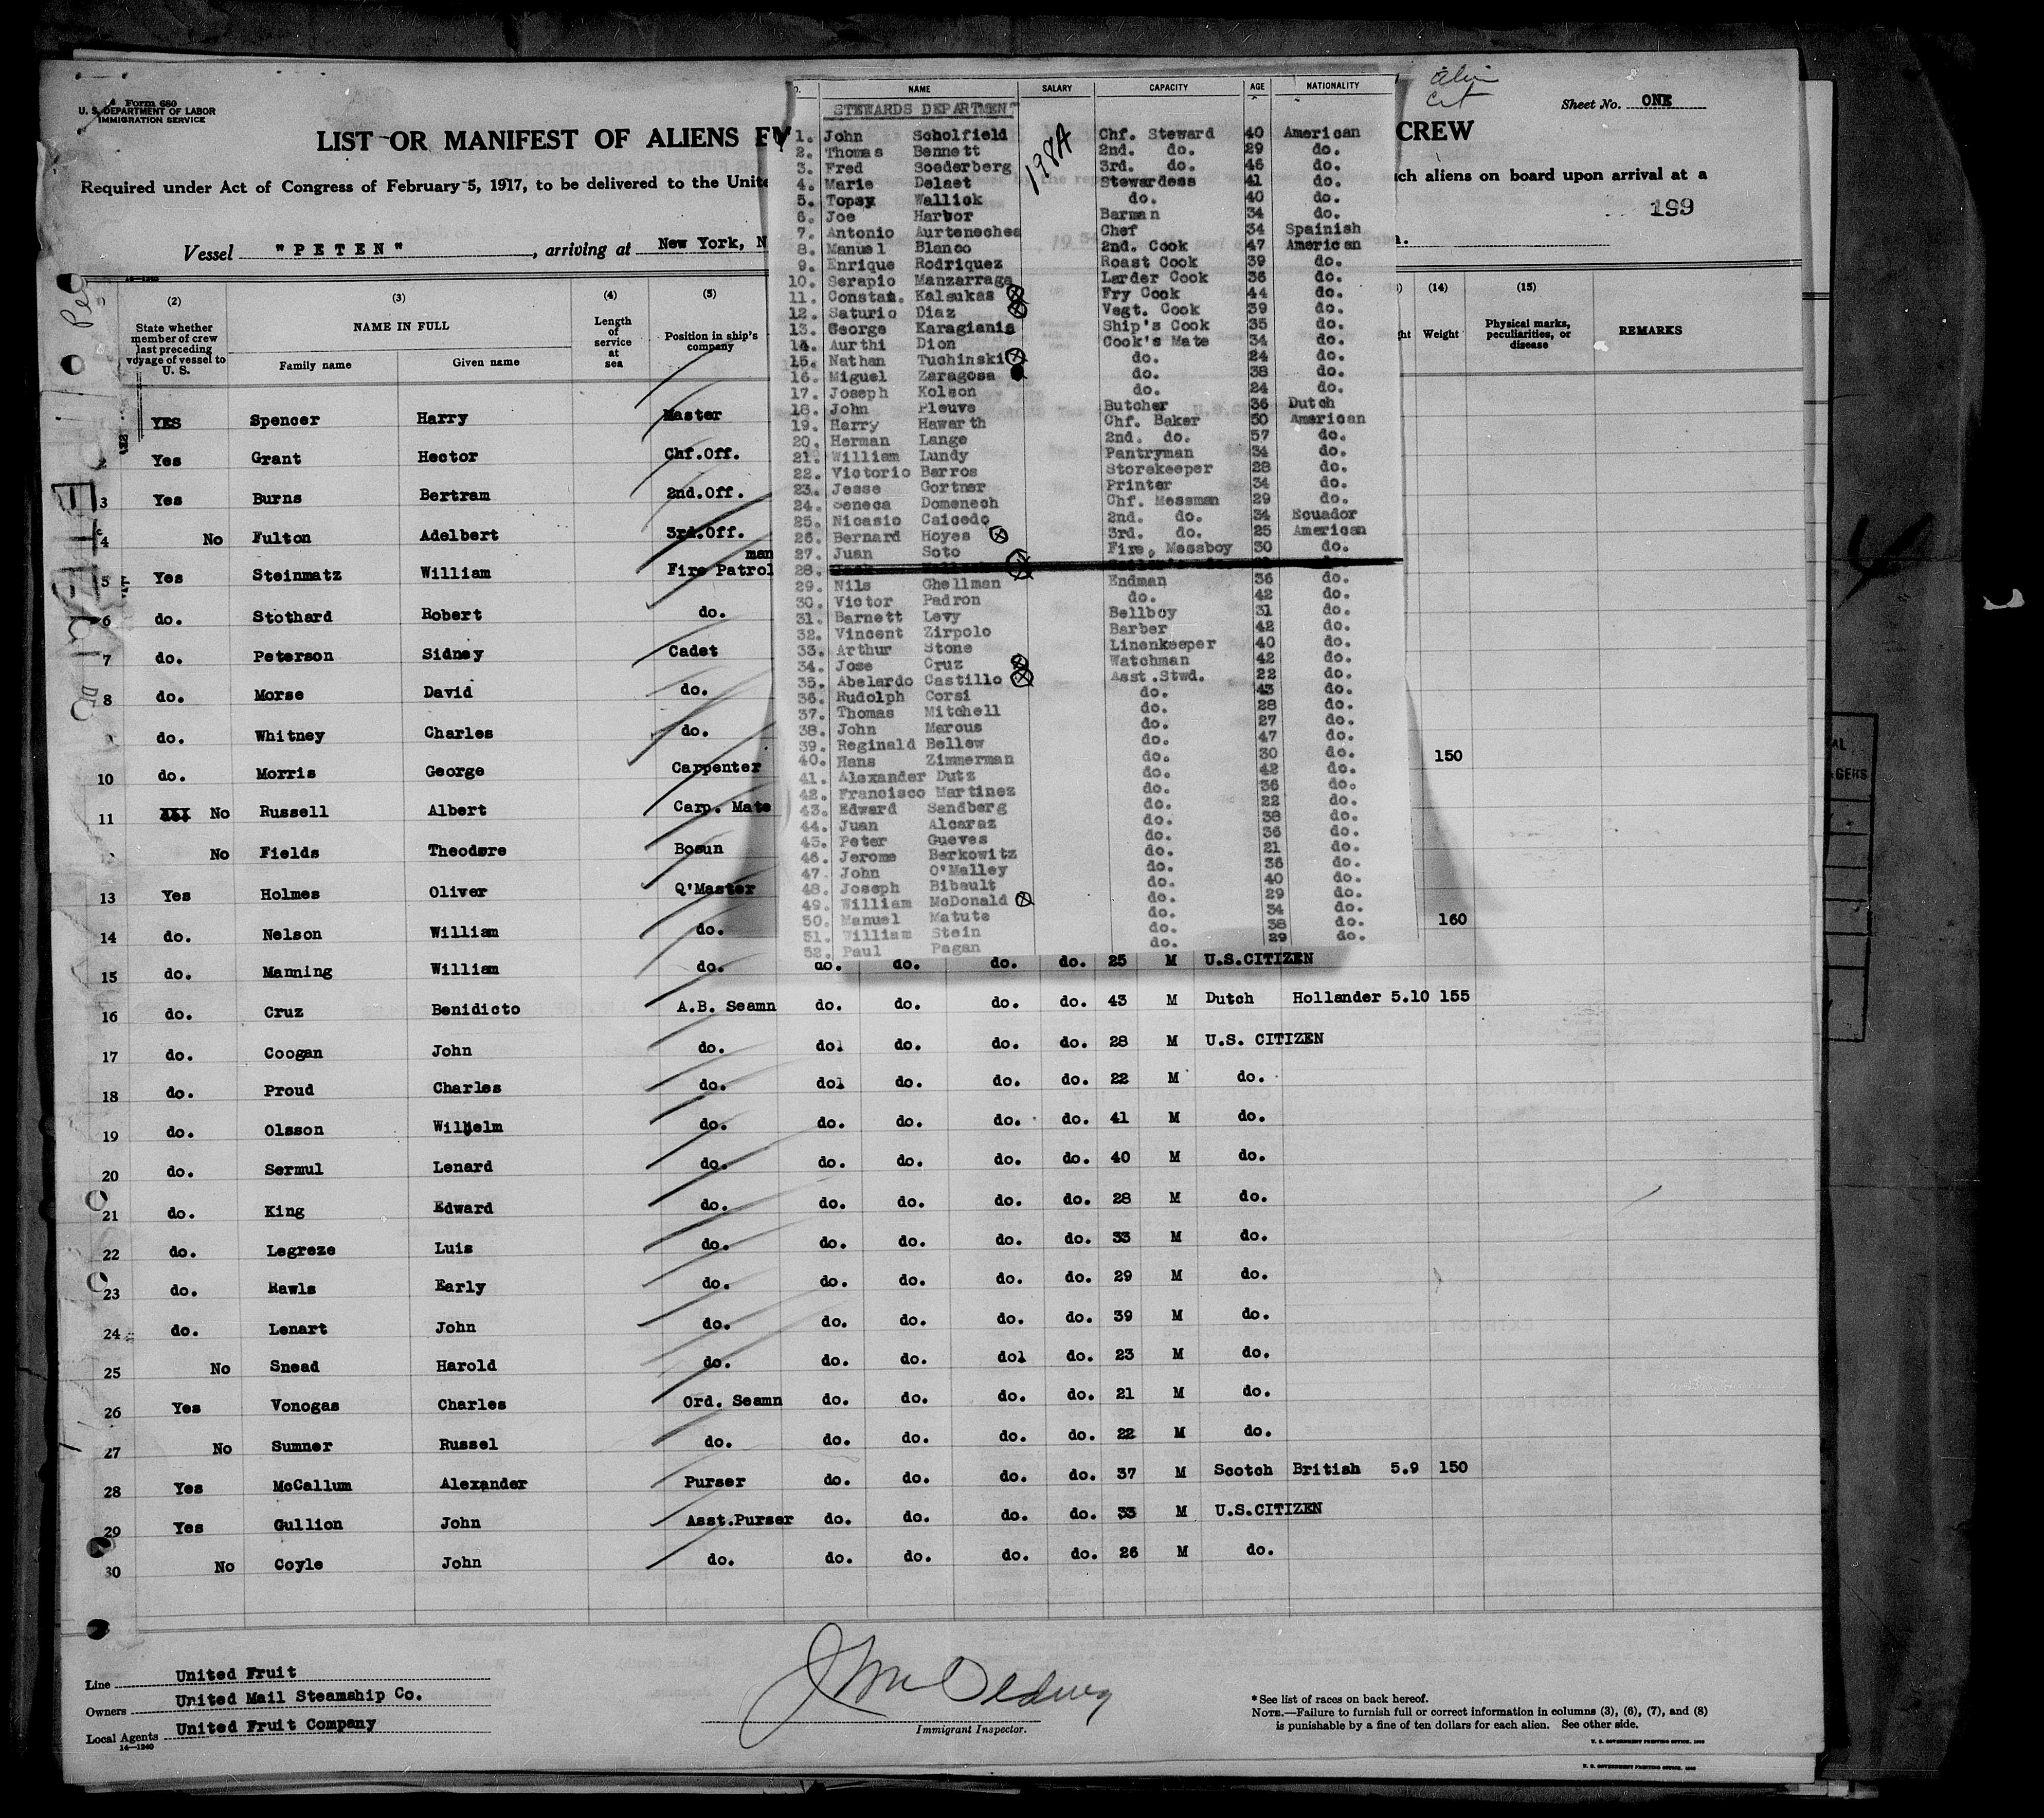 Form 680
U. S. DEPARTMENT OF LABOR
IMMIGRATION SERVICE
Sheet No. ONE
LIST OR MANIFEST OF ALIENS
CREW
Required under Act of Congress of February 5, 1917, to be delivered to the
aliens on board upon arrival at a
199
Vessel "PETEN", arriving at New York, N
NAME SALARY CAPACITY AGE NATIONALITY
STEWARDS DEPARTMENT
198A
1. John Scholfield Chf. Steward 40 American
2. Thomas Bennett 2nd. do. 29 do.
3. Fred Soederberg 3rd. do. 46 do.
4. Marie Delaet Stewardess 41 do.
5. Topsy Wallick do. 40 do.
6. Joe Harbor Barman 34 do.
7. Antonio Aurtenechea Chef 34 Spainish
8. Manuel Blanco 2nd. Cook 47 American
9. Enrique Rodriquez Roast Cook 39 do.
10. Serapio Manzarraga Larder Cook 36 do.
11. Constan. Kalsukas Fry Cook 44 do.
12. Saturio Diaz Vegt. Cook 39 do.
13. George Karagianis Ship's Cook 35 do.
14. Aurthi Dion Cook's Mate 34 do.
15. Nathan Tuchinski do. 24 do.
16. Miguel Zaragosa do. 38 do.
17. Joseph Kolson do. 24 do.
18. John Pleuve Butcher 36 Dutch
19. Harry Hawarth Chf. Baker 50 American
20. Herman Lange 2nd. do. 57 do.
21. William Lundy Pantryman 34 do.
22. Victorio Barros Storekeeper 28 do.
23. Jesse Gortner Printer 34 do.
24. Seneca Domenech Chf. Messman 29 do.
25. Nicasio Caicedo 2nd. do. 34 Ecuador
26. Bernard Hoyes 3rd. do. 25 American
27. Juan Soto Fire. Messboy 30 do.
28.
29. Nils Ghellman Endman 36 do.
30. Victor Padron do. 42 do.
31. Barnett Levy Bellboy 31 do.
32. Vincent Zirpolo Barber 42 do.
33. Arthur Stone Linenkeeper 40 do.
34. Jose Cruz Watchman 42 do.
35. Abelardo Castillo Asst.Stwd. 22 do.
36. Rudolph Corsi do. 43 do.
37. Thomas Mitchell do. 28 do.
38. John Marcus do. 27 do.
39. Reginald Bellew do. 47 do.
40. Hans Zimmerman do. 30 do.
41. Alexander Dutz do. 42 do.
42. Francisco Martinez do. 36 do.
43. Edward Sandberg do. 22 do.
44. Juan Alcaraz do. 38 do.
45. Peter Gueves do. 36 do.
46. Jerome Berkowitz do. 21 do.
47. John O'Malley do. 36 do.
48. Joseph Bibault do. 40 do.
49. William McDonald do. 29 do.
50. Manuel Matute do. 34 do.
51. William Stein do. 38 do.
52. Paul Pagan do. 29 do.
(2) (3) (4) (5) (14) (15)
State whether member of crew last preceding voyage of vessel to U. S.
NAME IN FULL
Family name Given name
Length of service at sea
Position in ship's company
Weight
Physical marks, peculiarities, or disease
REMARKS
YES Spencer Harry Master
2 Yes Grant Hector Chf.Off.
3 Yes Burns Bertram 2nd.Off.
4 No Fulton Adelbert 3rd.Off.
5 Yes Steinmatz William Fire Patrolman
6 do. Stothard Robert do.
7 do. Peterson Sidney Cadet
8 do. Morse David do.
do. Whitney Charles do.
10 do. Morris George Carpenter 150
11 No Russell Albert Carp. Mate
No Fields Theodore Bosun
13 Yes Holmes Oliver Q'Master
14 do. Nelson William do. 160
15 do. Manning William do. do. do. do. do. 25 M U.S.CITIZEN
16 do. Cruz Benidicto A.B. Seamn do. do. do. do. 43 M Dutch Hollander 5.10 155
17 do. Coogan John do. dol do. do. do. 28 M U.S. CITIZEN
18 do. Proud Charles do. dol do. do. do. 22 M do.
19 do. Olsson Wilhelm do. do. do. do. do. 41 M do.
20 do. Sermul Lenard do. do. do. do. do. 40 M do.
21 do. King Edward do. do. do. do. do. 28 M do.
22 do. Legreze Luis do. do. do. do. do. 33 M do.
23 do. Rawls Early do. do. do. do. do. 29 M do.
24 do. Lenart John do. do. do. do. do. 39 M do.
25 No Snead Harold do. do. do. dol do. 23 M do.
26 Yes Vonogas Charles Ord. Seamn do. do. do. do. 21 M do.
27 No Sumner Russel do. do. do. do. do. 22 M do.
28 Yes McCallum Alexander Purser do. do. do. do. 37 M Scotch British 5.9 150
29 Yes Gullion John Asst.Purser do. do. do. do. 33 M U.S.CITIZEN
30 No Coyle John do. do. do. do. do. 26 M do.
Line United Fruit
Owners United Mail Steamship Co.
Local Agents United Fruit Company
14—1240
Immigrant Inspector.
* See list of races on back hereof.
NOTE.—Failure to furnish full or correct information in columns (3), (6), (7), and (8)
is punishable by a fine of ten dollars for each alien. See other side.
U. S. GOVERNMENT PRINTING OFFICE
U. S. GOVERNMENT PRINTING OFFICE